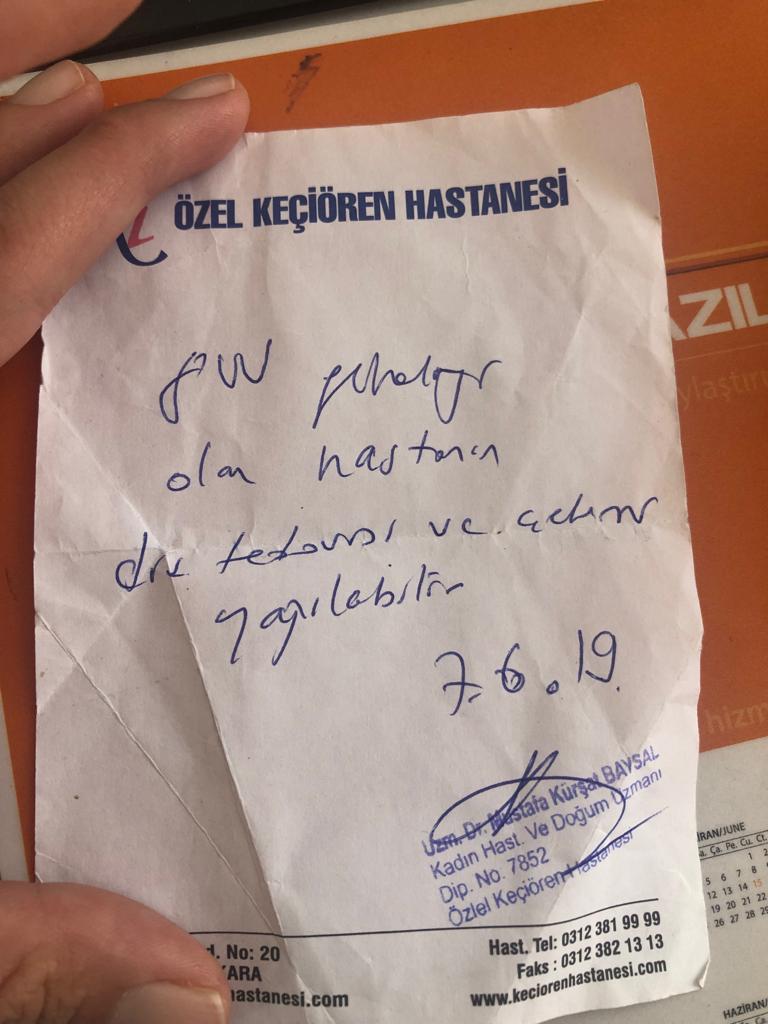 ÖZEL KEÇİÖREN HASTANESİ
8W gebeliği
olan hastanın
diş tedavisi ve çekimi
yapılabilir
7.6.19.
Uzm. Dr. Mustafa Kürşat BAYSAL
Kadın Hast. Ve Doğum Uzmanı
Dip. No. 7852
Özlel Keçiören Hastanesi
d. No: 20
KARA
hastanesi.com
Hast. Tel: 0312 381 99 99
Faks : 0312 382 13 13
www.keciorenhastanesi.com
AZIL
ylaştır
hizm
İRAN/JUNE
a. Ça. Pe. Cu. Ct.
1 2
5 6 7 8
12 13 14 15
19 20 21 22
26 27 28 29
HAZİRAN/